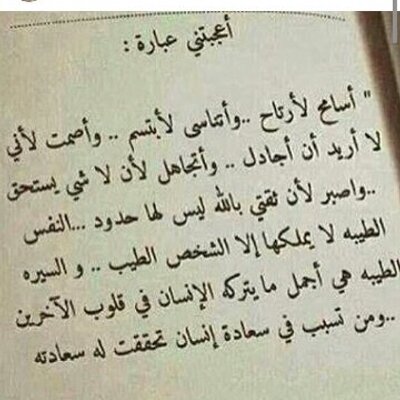 أعجبتني عبارة :
" أسامح لأرتاح ..وأتناسى لأبتسم .. وأصمت لأني
لا أريد أن أجادل .. وأتجاهل لأن لا شي يستحق
..واصبر لأن ثقتي بالله ليس لها حدود ...النفس
الطيبه لا يملكها إلا الشخص الطيب .. و السيره
الطيبه هي أجمل ما يتركه الإنسان في قلوب الآخرين
..ومن تسبب في سعادة إنسان تحققت له سعادته